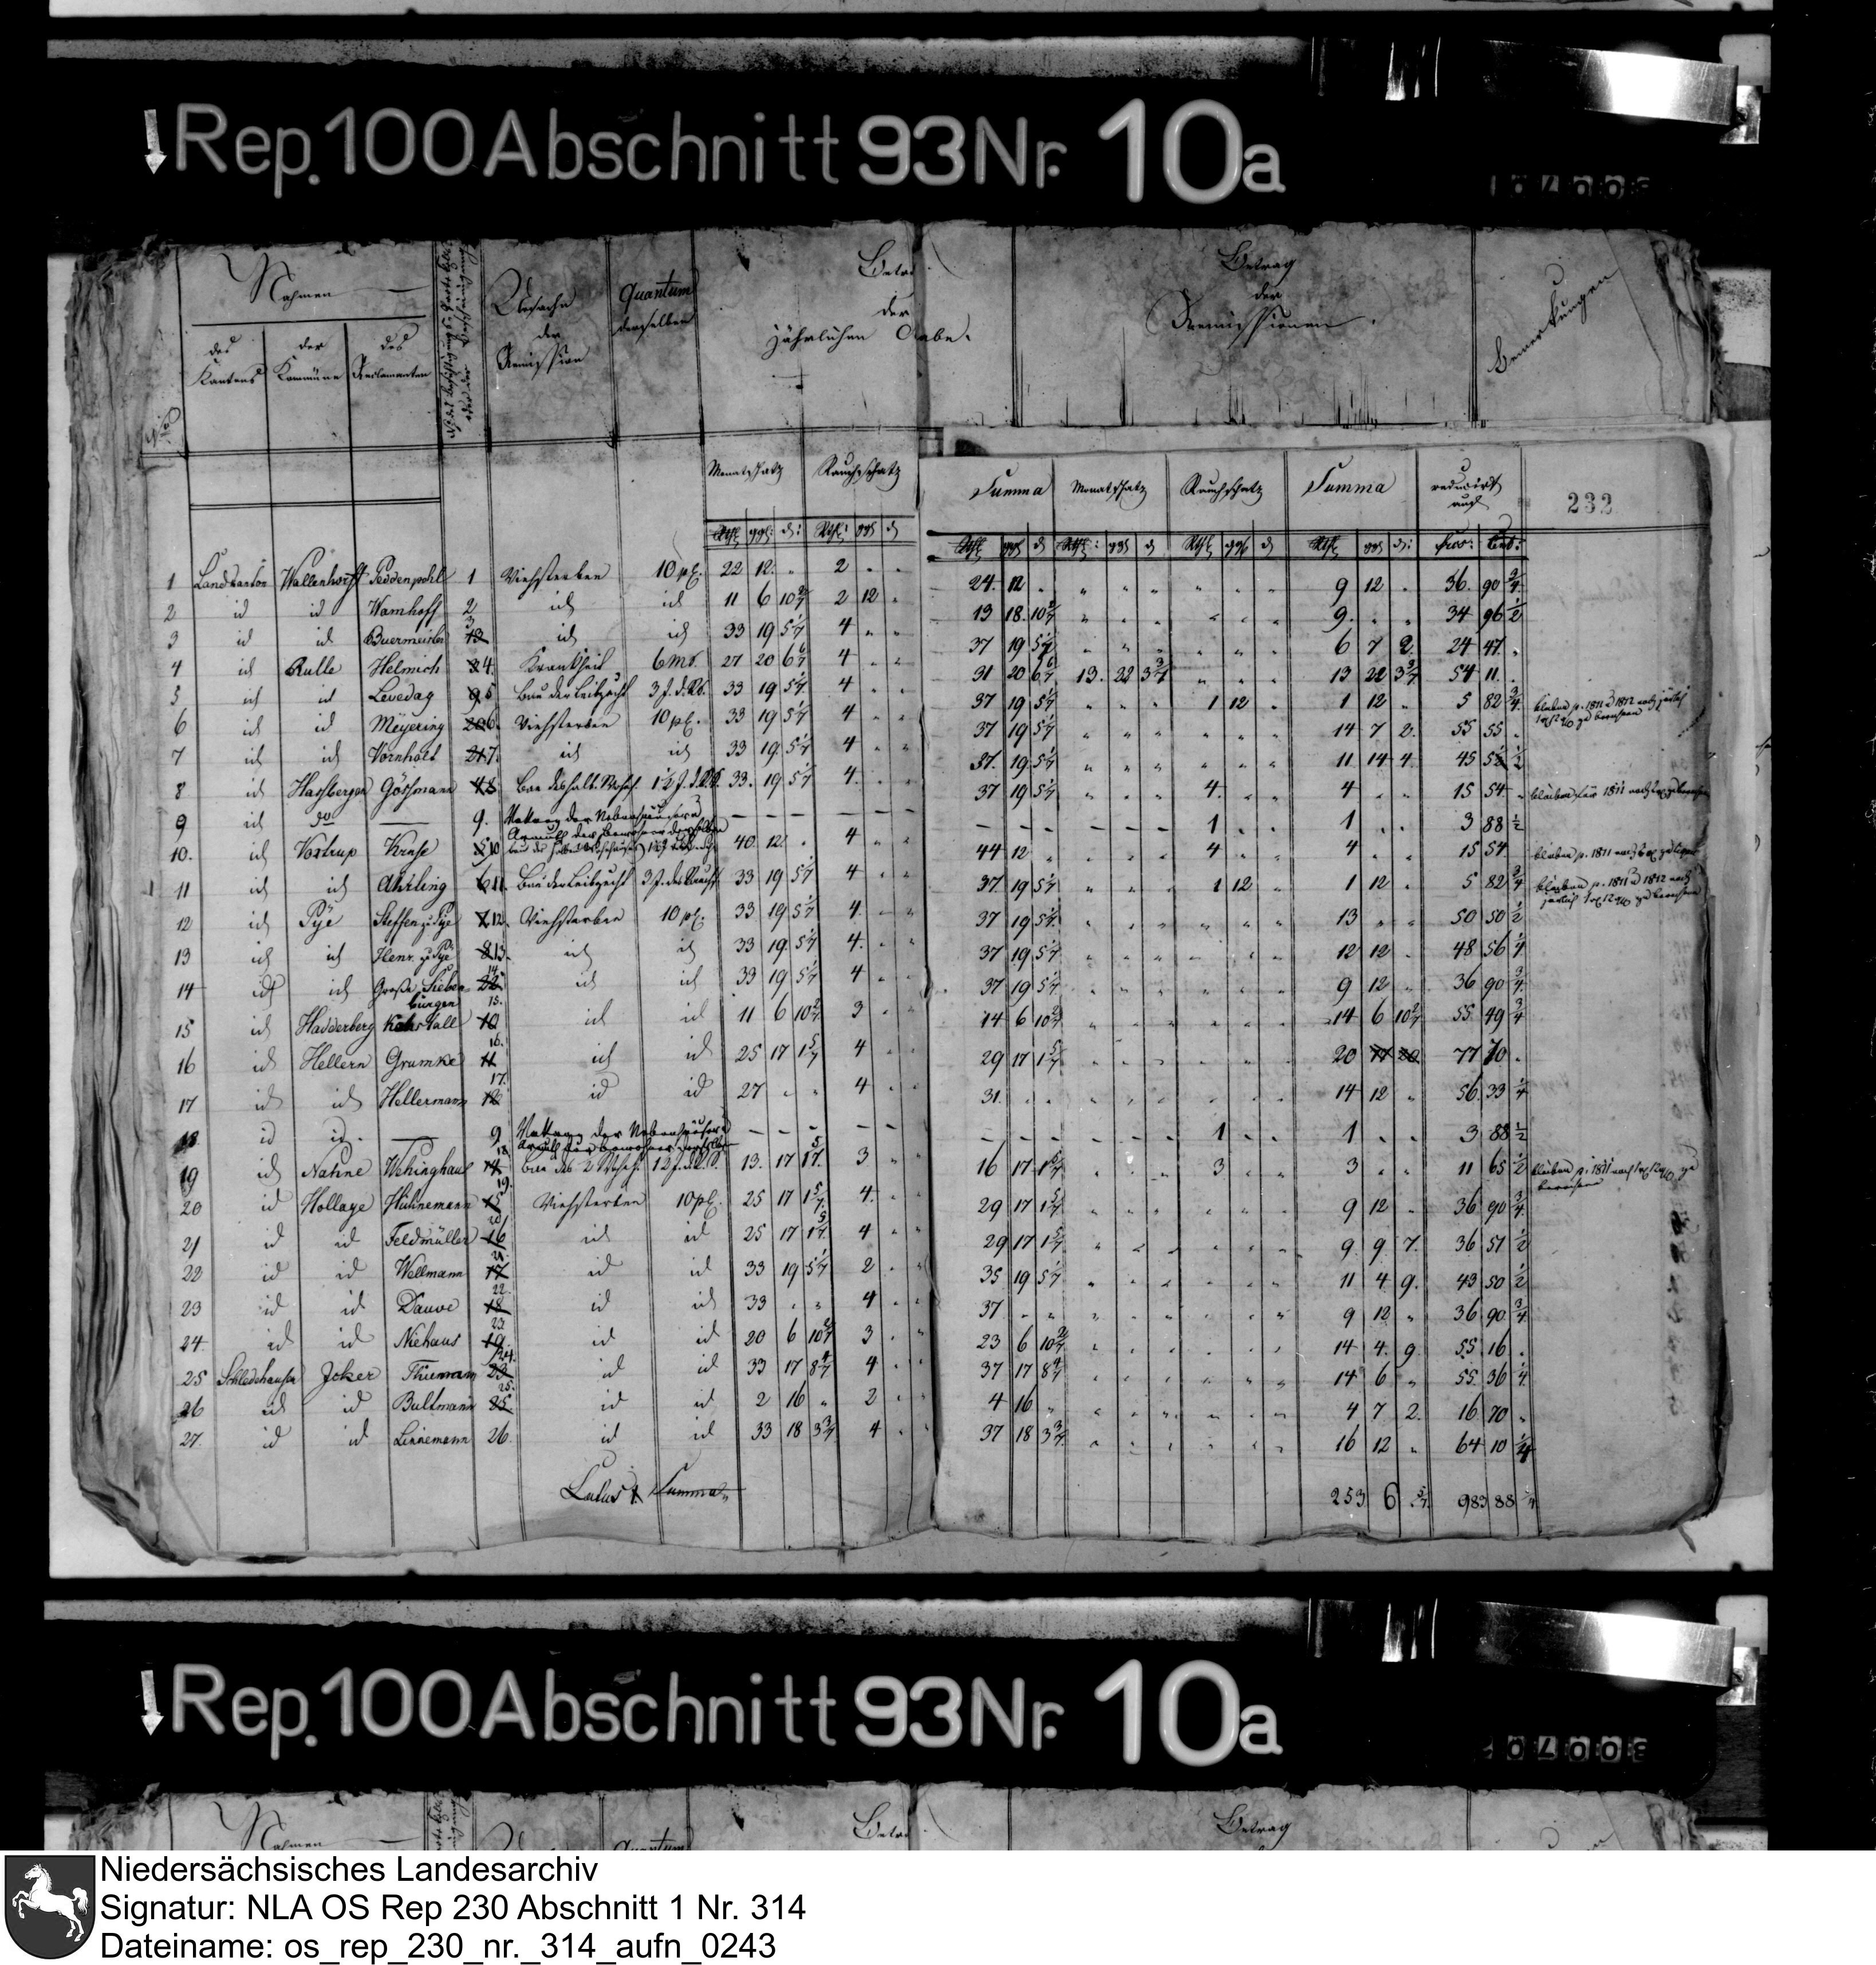 Rep. 100 Abschnitt 93 Nr. 10a
Nahmen
des Kantons
der Kommüne
des Reclamanten
Ursache der Remission
Quantum derselben
Betrag der jährlichen Abgabe.
Betrag der Remissionen.
Bemerkungen
Monatschatz Rauchschatz Summa Monatschatz Rauchschatz Summa reducirt auf 232
1 Landkanton Wallenhorst Peddenpohl 1 Viehsterben 10 pC. 22 12 " 2 " " 24 12 " " " " " " " 9 12 " 36 90 3/4
2 id id Wamhoff 2 id id 11 6 10 2/7 2 12 " 13 18 10 2/7 " " " " " " 9 " " 34 96 1/2
3 id id Buermeister 3 id id 33 19 5 1/7 4 " " 37 19 5 1/7 " " " " " " 6 7 2 24 47 "
4 id Rulle Helmich 4 Krankheit 6 Mt. 27 20 6 6/7 4 " " 31 20 6 6/7 13 22 3 3/7 " " " 13 22 3 3/7 54 11
5 id id Levedag 5 Bau der Leibzucht 3 J. d. Rs. 33 19 5 1/7 4 " " 37 19 5 1/7 " " " 1 12 " 1 12 " 5 82 3/4
6 id id Meyering 6 Viehsterben 10 pC. 33 19 5 1/7 4 " " 37 19 5 1/7 " " " " " " 14 7 2 55 55 "
7 id id Vornholt 7 id id 33 19 5 1/7 4 " " 37 19 5 1/7 " " " " " " 11 14 4 45 5 1/2
8 id Hassbergen Gösmann 8 33 19 5 1/7 4 " " 37 19 5 1/7 " " " 4 " " 4 " " 15 54 "
9 id do — 9 — — — — — — — — — — — — 1 " " 1 " " 3 88 1/2
10 id Voxtrup Kruse 10 40 12 " 4 " " 44 12 " " " " 4 " " 4 " " 15 54
11 id id Ahrling 11 Bau der Leibzucht 3 J. des Rauchs 33 19 5 1/7 4 " " 37 19 5 1/7 " " " 1 12 " 1 12 " 5 82 3/4
12 id Pye Steffen zu Pye 12 Viehsterben 10 pC. 33 19 5 1/7 4 " " 37 19 5 1/7 " " " " " " 13 " " 50 50 1/2
13 id id Henr. zu Pye 13 id id 33 19 5 1/7 4 " " 37 19 5 1/7 " " " " " " 12 12 " 48 56 1/4
14 id id Große Sieben bürgen 14 id id 33 19 5 1/7 4 " " 37 19 5 1/7 " " " " " " 9 12 " 36 90 3/4
15 id Hadderberg 15 id id 11 6 10 2/7 3 " " 14 6 10 2/7 " " " " " " 14 6 10 2/7 55 49 3/4
16 id Hellern Grumke 16 id id 25 17 1 5/7 4 " " 29 17 1 5/7 " " " " " " 20 77 70 "
17 id id Hellermann 17 id id 27 " " 4 " " 31 " " " " " " " " 14 12 " 56 33 1/4
18 id id — 9 — — — — — — — — — — — — 1 " " 1 " " 3 88 1/2
19 id Nahne Wehinghaus 18 13 17 1 5/7 3 " " 16 17 1 5/7 " " " 3 " " 3 " " 11 65 1/2
20 id Hollage Hühnemann 19 Viehsterben 10 pC. 25 17 1 5/7 4 " " 29 17 1 5/7 " " " " " " 9 12 " 36 90 3/4
21 id id Feldmüller 20 id id 25 17 1 5/7 4 " " 29 17 1 5/7 " " " " " " 9 9 7 36 51 1/2
22 id id Wellmann 21 id id 33 19 5 1/7 2 " " 35 19 5 1/7 " " " " " " 11 4 9 43 50 1/2
23 id id Dauwe 22 id id 33 " " 4 " " 37 " " " " " " " " 9 12 " 36 90 3/4
24 id id Niehaus 23 id id 20 6 10 2/7 3 " " 23 6 10 2/7 " " " " " " 14 4 9 55 16 "
25 Schledehausen Jeker Thiemann 24 id id 33 17 8 4/7 4 " " 37 17 8 4/7 " " " " " " 14 6 " 55 36 1/4
26 id id Bultmann 25 id id 2 16 " 2 " " 4 16 " " " " " " " 4 7 2 16 70 "
27 id id Linnemann 26 id id 33 18 3 3/7 4 " " 37 18 3 3/7 " " " " " " 16 12 " 64 10 1/4
Latus Summa 253 6 5/7 983 88
Rep. 100 Abschnitt 93 Nr. 10a
Nahmen
Quantum
Betrag
Niedersächsisches Landesarchiv
Signatur: NLA OS Rep 230 Abschnitt 1 Nr. 314
Dateiname: os_rep_230_nr._314_aufn_0243